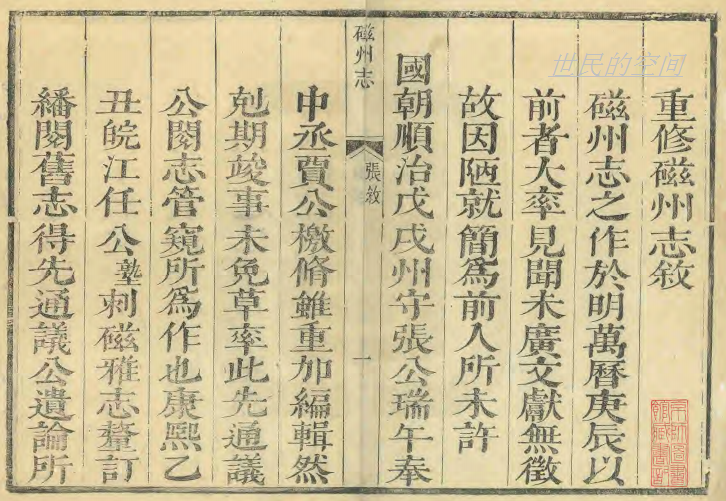 世民的空间
重修磁州志敘
磁州志之作於明萬曆庚辰以
前者大率見聞未廣文獻無徵
故因陋就簡爲前人所未許
國朝順治戊戌州守張公瑞午奉
磁州志
張敘
一
中丞賈公檄脩雖重加編輯然
剋期竣事未免草率此先通議
公閱志管窺所爲作也康熙乙
丑皖江任公塾刺磁雅志釐訂
繙閱舊志得先通議公遺論所